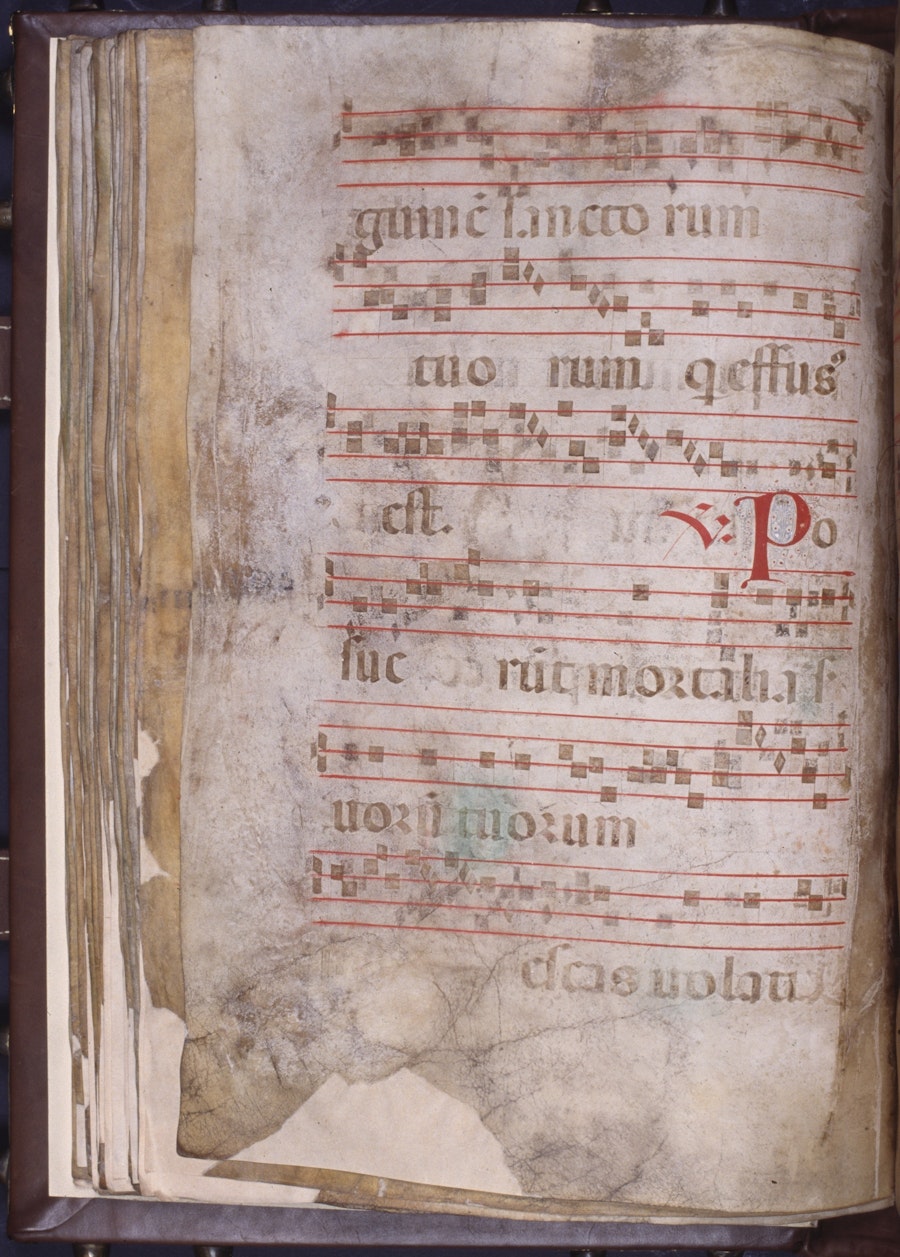 guinē sancto rum
tuo rum q̃ effus⁹
est. ℣. Po
sue rūt mortalia s
uorū tuorum
escas uolati